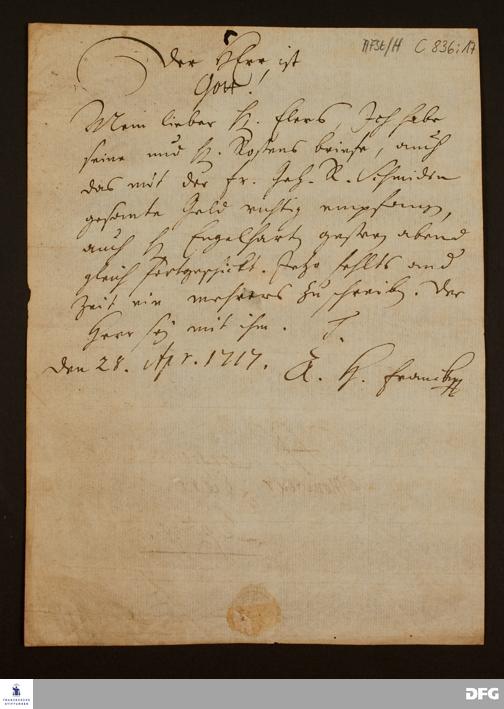 AFSt/H C 836:17
Der HErr ist
Gott!
Mein lieber H. Elers, Ich habe
seine und H. Rostens briefe, auch
das mit der Fr. Geh. R. Schmidin
gesamte Geld richtig empfangen,
auch H. Engelhart gestern abend
gleich fortgeschickt. Jetzo fehlts and
Zeit ein mehrers zu schreiben. Der
Herr sey mit ihm. T.
den 28. Apr. 1717.
A. H. Francke
FRANCKESCHE
STIFTUNGEN
DFG